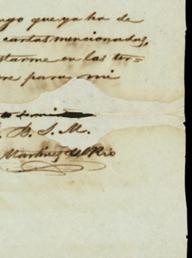 que ya ha de
cartas mencionadas,
starme en las ter-
para mi
B. S. M.
Martinez del Rio